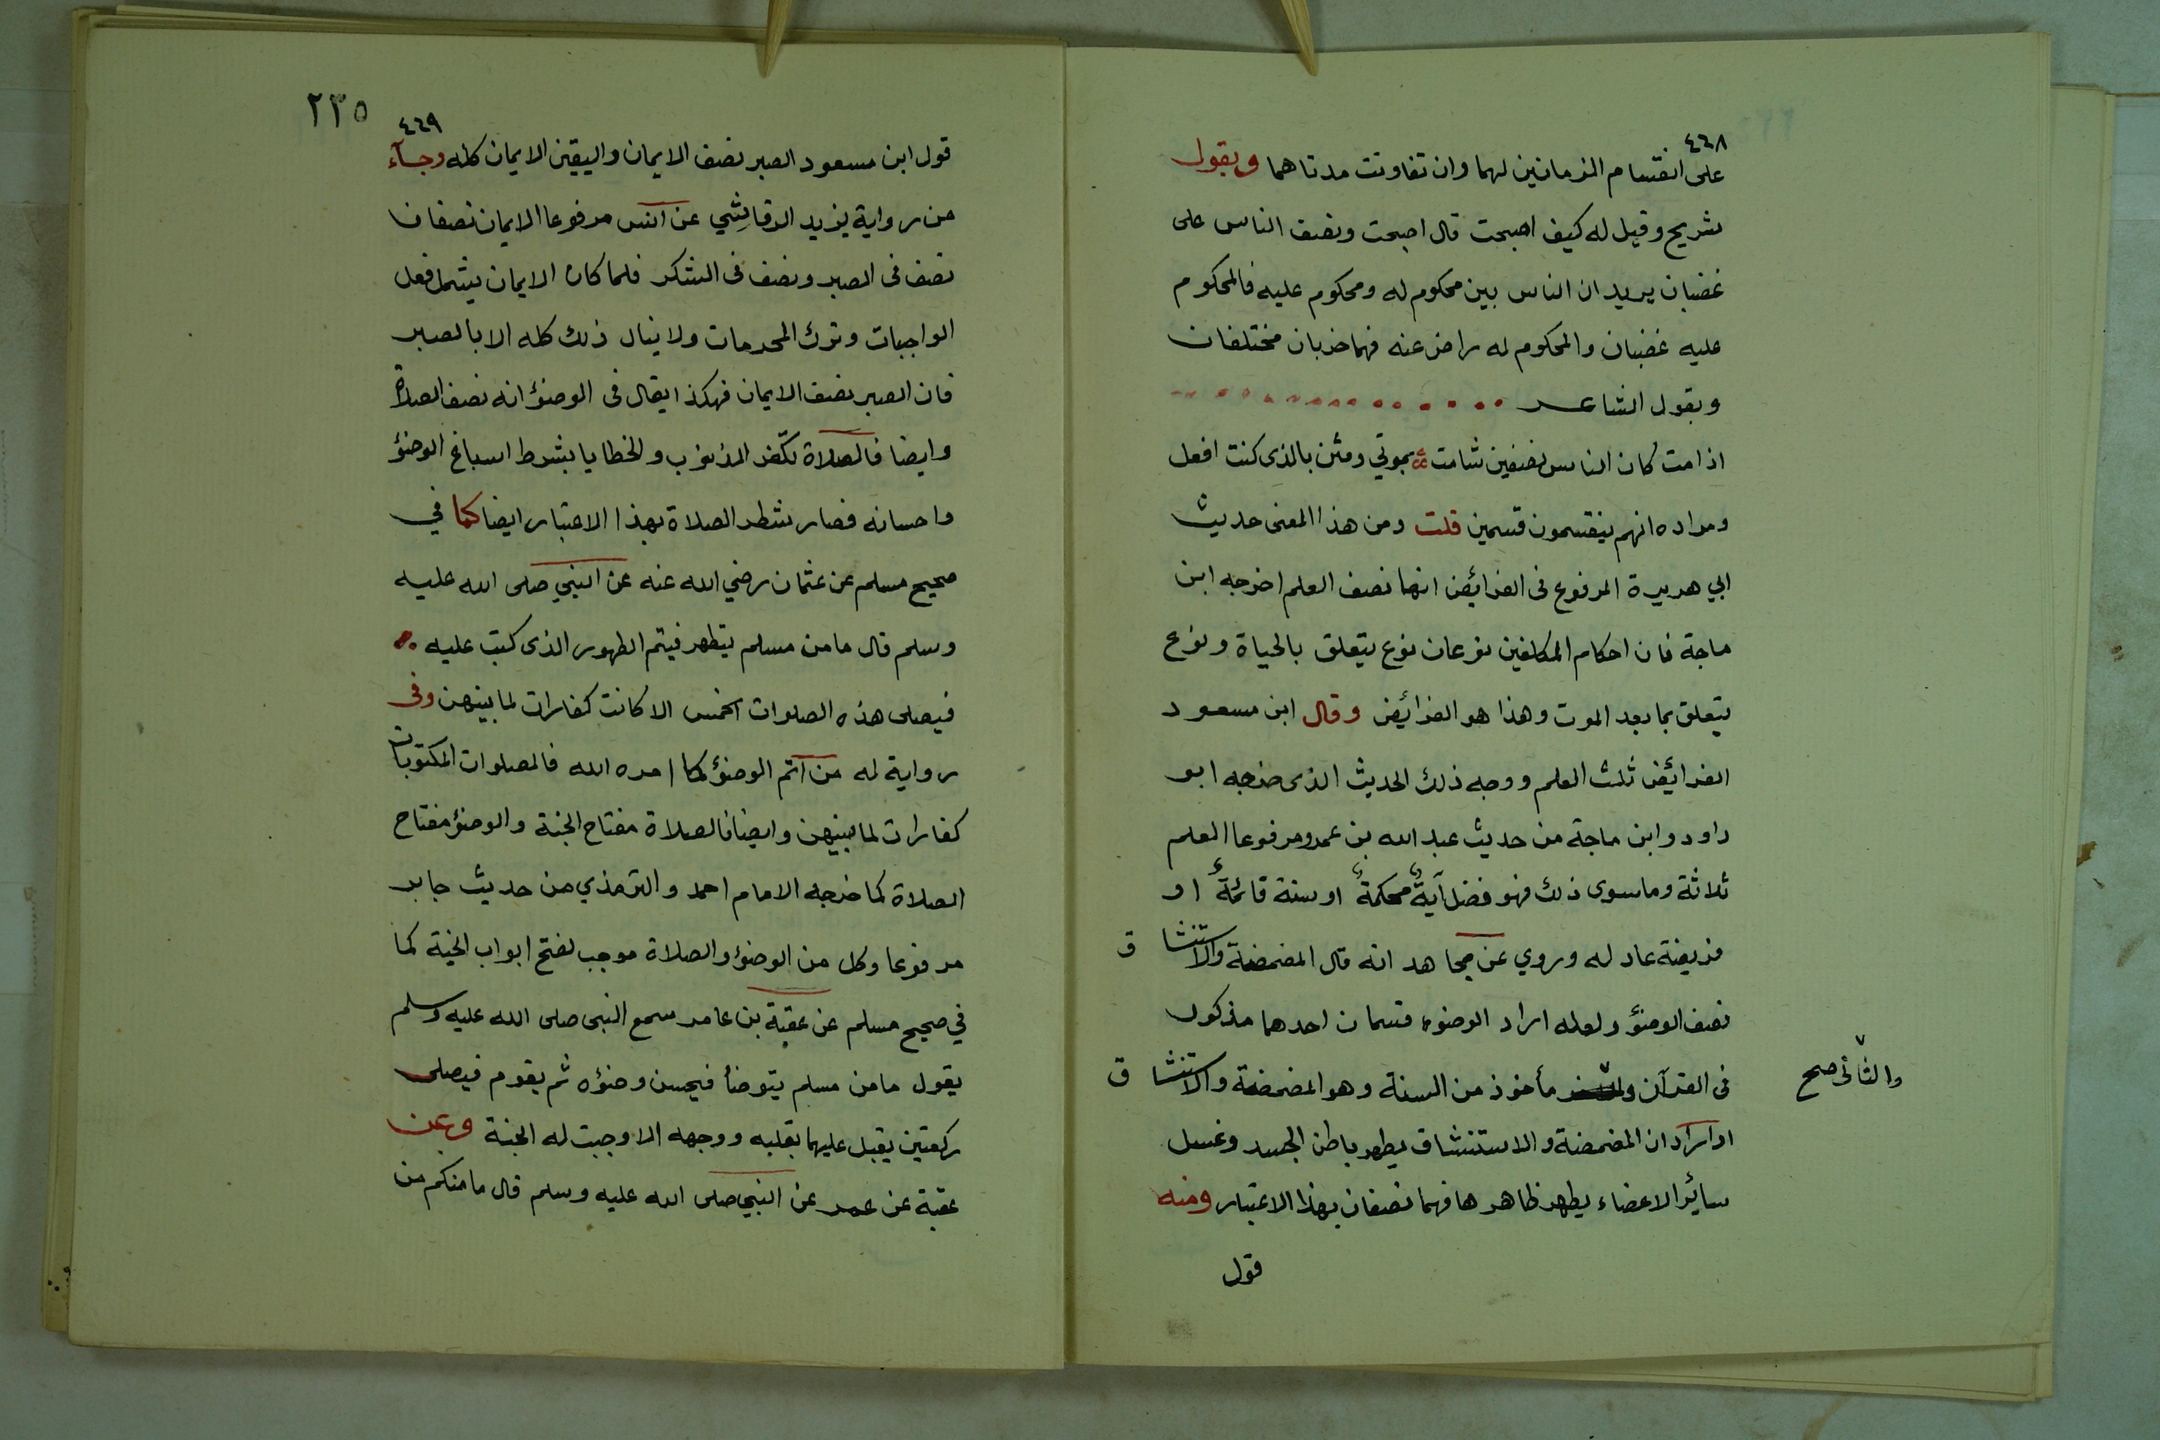 ٤٦٨
على انقسام الزمانين لهما وان تفاوتت مدتاهما وبقول
شريح وقيل له كيف اصبحت قال اصبحت ونصف الناس على
غضبان يريد ان الناس بين محكوم له ومحكوم عليه فالمحكوم
عليه غضبان والمحكوم له راض عنه فهما حزبان مختلفان
وبقول الشاعر
اذا مت كان الناس نصفين شامت بموتي ومثن بالذى كنت افعل
ومراده انهم ينقسمون قسمين قلت ومن هذا المعنى حديث
ابي هريرة المرفوع فى الفرائض انها نصف العلم اخرجه ابن
ماجة فان احكام المكلفين نوعان نوع يتعلق بالحياة ونوع
يتعلق بما بعد الموت وهذا هو الفرائض وقال ابن مسعود
الفرائض ثلث العلم ووجه ذلك الحديث الذى خرجه ابو
داود وابن ماجة من حديث عبد الله بن عمرو مرفوعا العلم
ثلاثة وما سوى ذلك فهو فضل آيةٌ محكمةٌ او سنة قائمةٌ او
فريضة عادله وروي عن مجاهد انه قال المضمضة والاستنشاق
نصف الوضؤ ولعله اراد الوضوء قسمان احدهما مذكور
فى القرآن مأخوذ من السنة وهو المضمضة والاستنشاق
والثانى صح
او اراد ان المضمضة والاستنشاق يطهر باطن الجسد وغسل
سائر الاعضاء يطهر ظاهرها فهما نصفان بهذا الاعتبار ومنه
قول
٢٣٥
٤٦٩
قول ابن مسعود الصبر نصف الايمان واليقين الايمان كله وجآء
من رواية يزيد الرقاشي عن انس مرفوعا الايمان نصفان
نصف فى الصبر ونصف فى الشكر فلما كان الايمان يشمل فعل
الواجبات وترك المحرمات ولا ينال ذلك كله الا بالصبر
فان الصبر نصف الايمان فهكذا يقال فى الوضؤ انه نصف الصلاة
وايضا فالصلاة تكفر الذنوب والخطايا بشرط اسباغ الوضؤ
واحسانه فصار شطر الصلاة بهذا الاعتبار ايضا كما في
صحيح مسلم عن عثمان رضي الله عنه عن النبي صلى الله عليه
وسلم قال ما من مسلم يتطهر فيتم الطهور الذى كتب عليه
فيصلى هذه الصلوات الخمس الا كانت كفارات لما بينهن وفى
رواية له من اتم الوضؤ كما امره الله فالصلوات المكتوبات
كفارات لما بينهن وايضا فالصلاة مفتاح الجنة والوضؤ مفتاح
الصلاة كما خرجه الامام احمد والترمذي من حديث جابر
مرفوعا وكل من الوضؤ والصلاة موجب لفتح ابواب الجنة كما
في صحيح مسلم عن عقبة بن عامر سمع النبى صلى الله عليه وسلم
يقول ما من مسلم يتوضأ فيحسن وضوؤه ثم يقوم فيصلى
ركعتين يقبل عليهما بقلبه ووجهه الا وجبت له الجنة وعن
عقبة عن عمر عن النبي صلى الله عليه وسلم قال ما منكم من